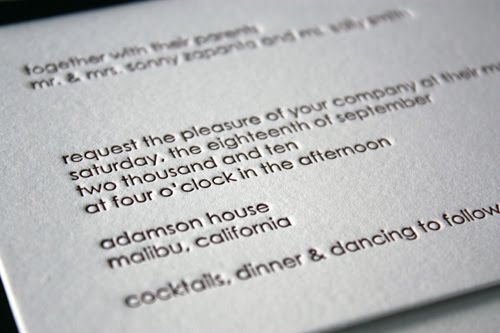 together with their parents
mr. & mrs. sonny zapanta and ms. sally smith
request the pleasure of your company at their
saturday, the eighteenth of september
two thousand and ten
at four o'clock in the afternoon
adamson house
malibu, california
cocktails, dinner & dancing to follow